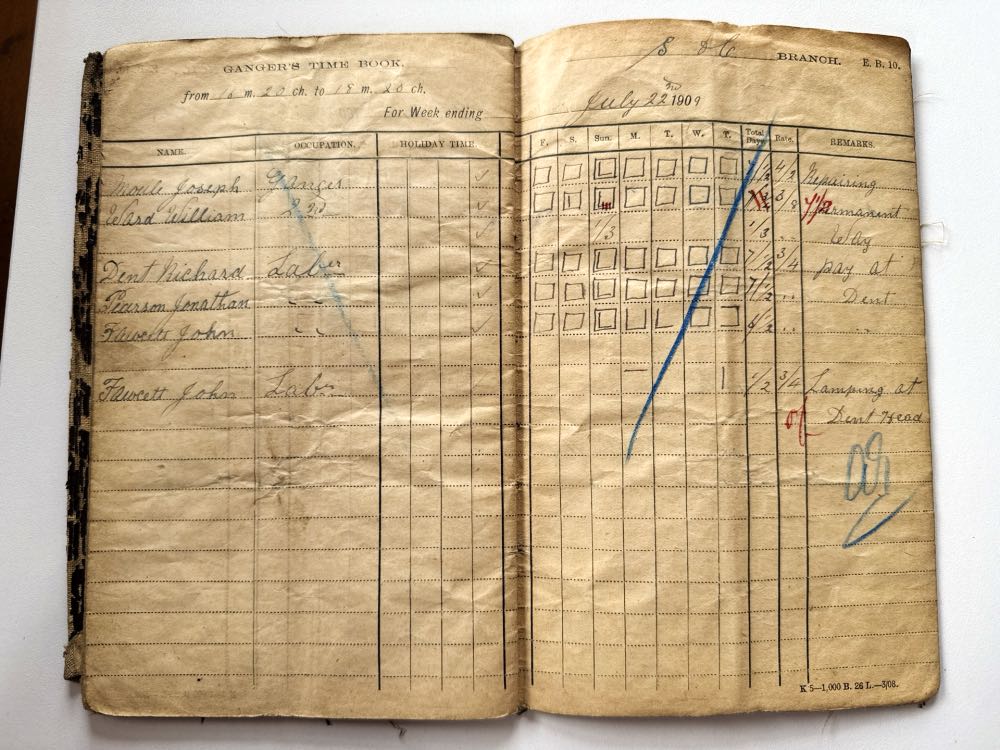 GANGER'S TIME BOOK.
from 16 m. 20 ch. to 18 m. 20 ch.
For Week ending
S & C BRANCH. E. B. 10.
July 22nd 1909
NAME. OCCUPATION. HOLIDAY TIME. F. S. Sun. M. T. W. T. Total Days. Rate. REMARKS.
Joseph Ganger 7 1/2 4/2 Repairing
Ward William 2nd 3/8 4/2 Permanent
1/3 1/3 .. Way
Dent Richard Laber ✓ 7 1/2 3/4 pay at
Pearson Jonathan " " ✓ 7 1/2 .. Dent
Fawcett John " " ✓ 1/2 .. ..
Fawcett John Laber 1/2 3/4 Lamping at
Dent Head
K 5—1,000 B. 26 L.—3/08.